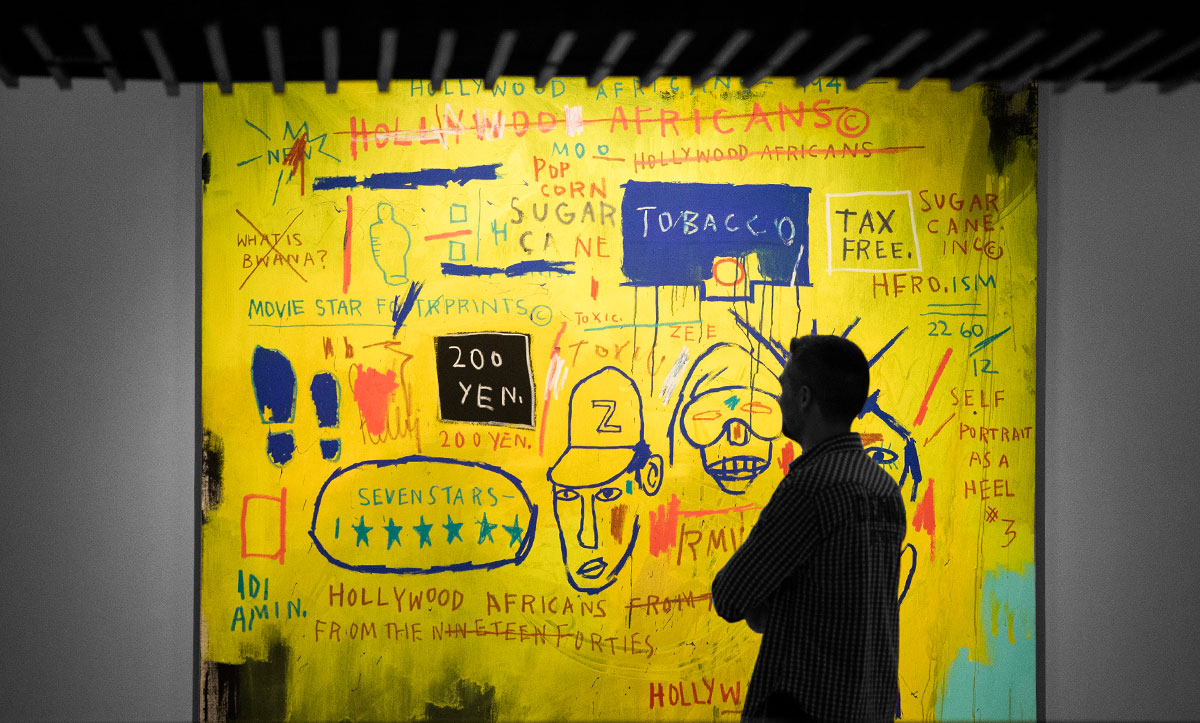 HOLLYWOOD AFRICANS
HOLLYWOOD AFRICANS©
HOLLYWOOD AFRICANS
POP
CORN
SUGAR
CANE
TOBACCO
TAX
FREE.
SUGAR
CANE.
INC©
WHAT IS
BWANA?
HERO.ISM
MOVIE STAR FOOTPRINTS©
TOXIC.
22 60
12
200
YEN.
200 YEN.
Z
SELF
PORTRAIT
AS A
HEEL
#3
SEVEN STARS—
IDI
AMIN.
HOLLYWOOD AFRICANS FROM
FROM THE NINETEEN FORTIES
HOLLYW